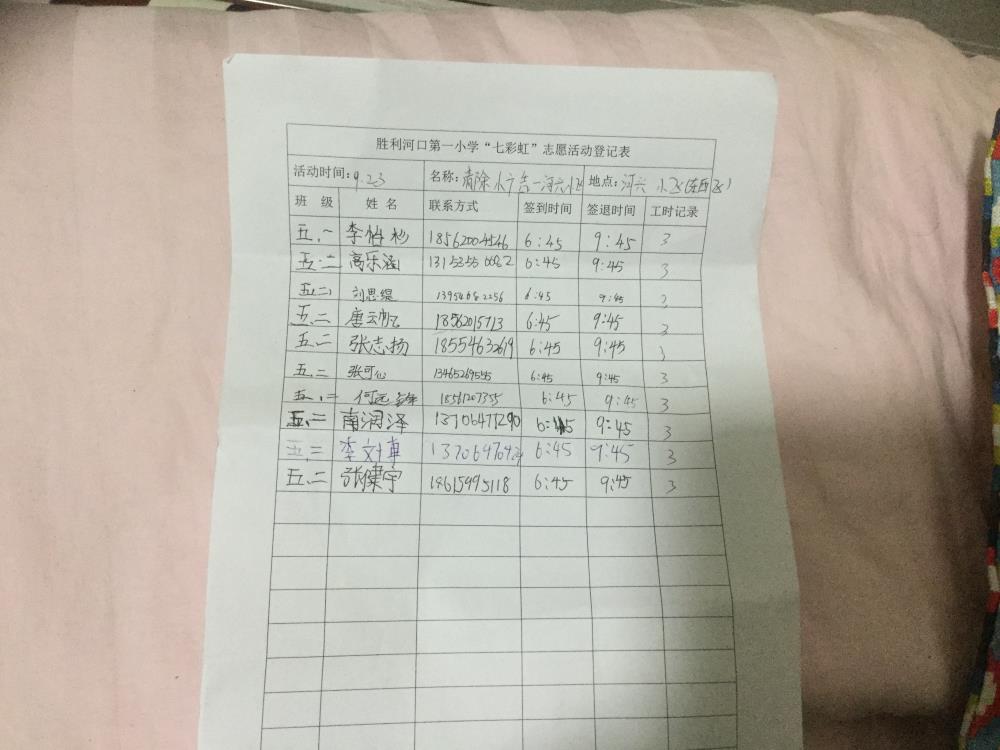 胜利河口第一小学“七彩虹”志愿活动登记表
活动时间：9.23 名称：清除小广告一河六小区 地点：河兴 小区(东西区)
班 级 姓 名 联系方式 签到时间 签退时间 工时记录
五.一 李怡杉 18562004546 6:45 9:45 3
五.二 高乐涵 6:45 9:45 3
五.二 刘思缇 6:45 9:45 3
五.二 唐云帆 6:45 9:45 3
五.二 张志扬 18554632619 6:45 9:45 3
五.二 张可心 13465269555 6:45 9:45 3
五.二 何远 18561207355 6:45 9:45 3
五.二 南润泽 13706477290 6:45 9:45 3
五.二 李文卓 6:45 9:45 3
五.二 张健宇 18615995118 6:45 9:45 3